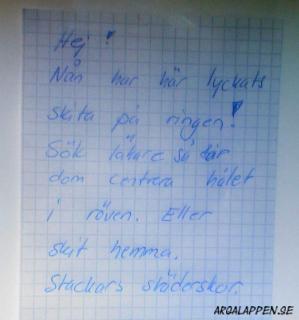 Hej!
Nån har här lyckats
skita på ringen!
Sök läkare så får
dom centrera hålet
i röven. Eller
skit hemma.
Stackars städerskor.
ARGALAPPEN.SE